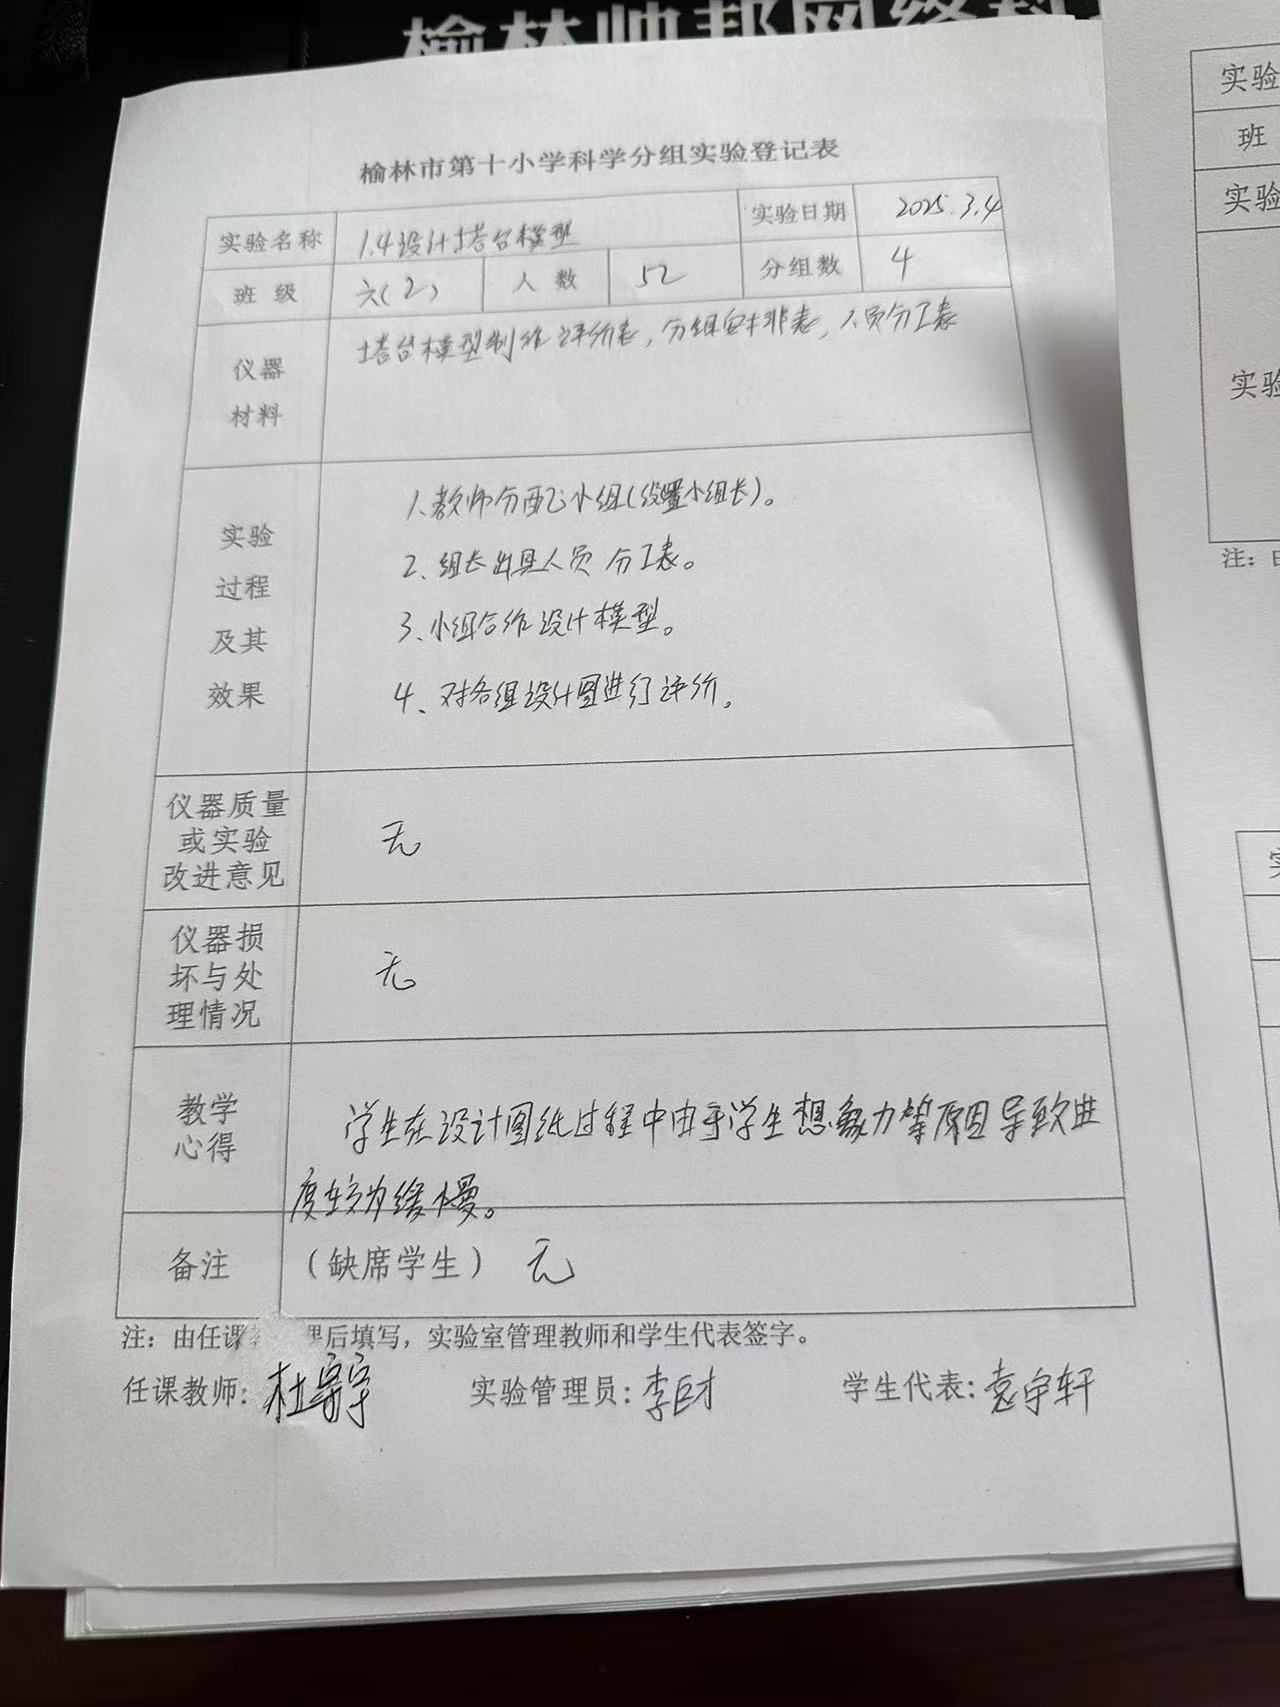 榆林帅邦网络科
榆林市第十小学科学分组实验登记表
实验名称 1.4设计塔台模型 实验日期 2025.3.4
班 级 六(2) 人 数 52 分组数 4
仪器
材料
塔台模型制作评价表,分组安排表,人员分工表
实验
过程
及其
效果
1、教师分配小组(设置小组长)。
2、组长出具人员分工表。
3、小组合作设计模型。
4、对各组设计图进行评价。
仪器质量
或实验
改进意见
无
仪器损
坏与处
理情况
无
教学
心得
学生在设计图纸过程中由于学生想象力等原因导致进
度较为缓慢。
备注 (缺席学生) 无
注:由任课 课后填写,实验室管理教师和学生代表签字。
任课教师: 杜 实验管理员:李巨才 学生代表:袁宇轩
实验
班
实验
实验
注: